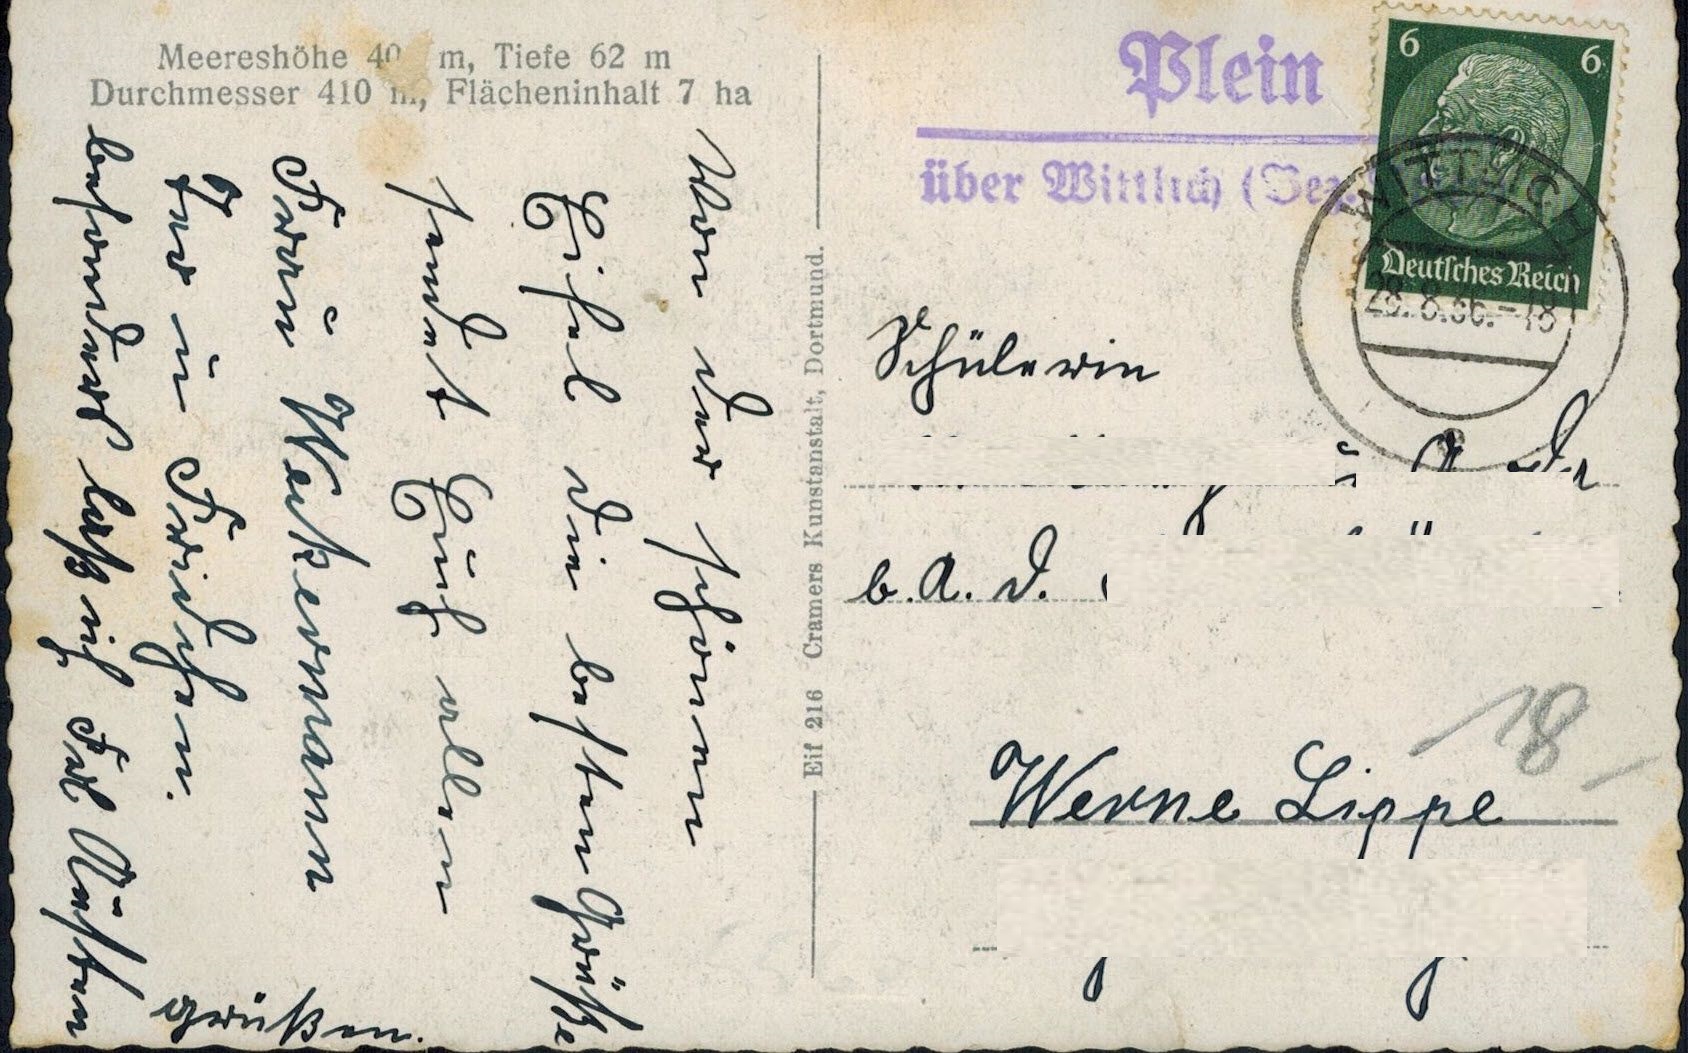 Meereshöhe 40 m, Tiefe 62 m
Durchmesser 410 m, Flächeninhalt 7 ha
Von der schönen
Eifel die besten Grüße
sendet Euch allen
Frau
u
besonders laß ich Frl
grüßen.
Eif 216 Cramers Kunstanstalt, Dortmund.
Plein
über Wittlich (Bez.
6 6
Deutsches Reich
WITTLICH
28.8.36.-18
Schülerin
b. A. d.
18
Werne Lippe